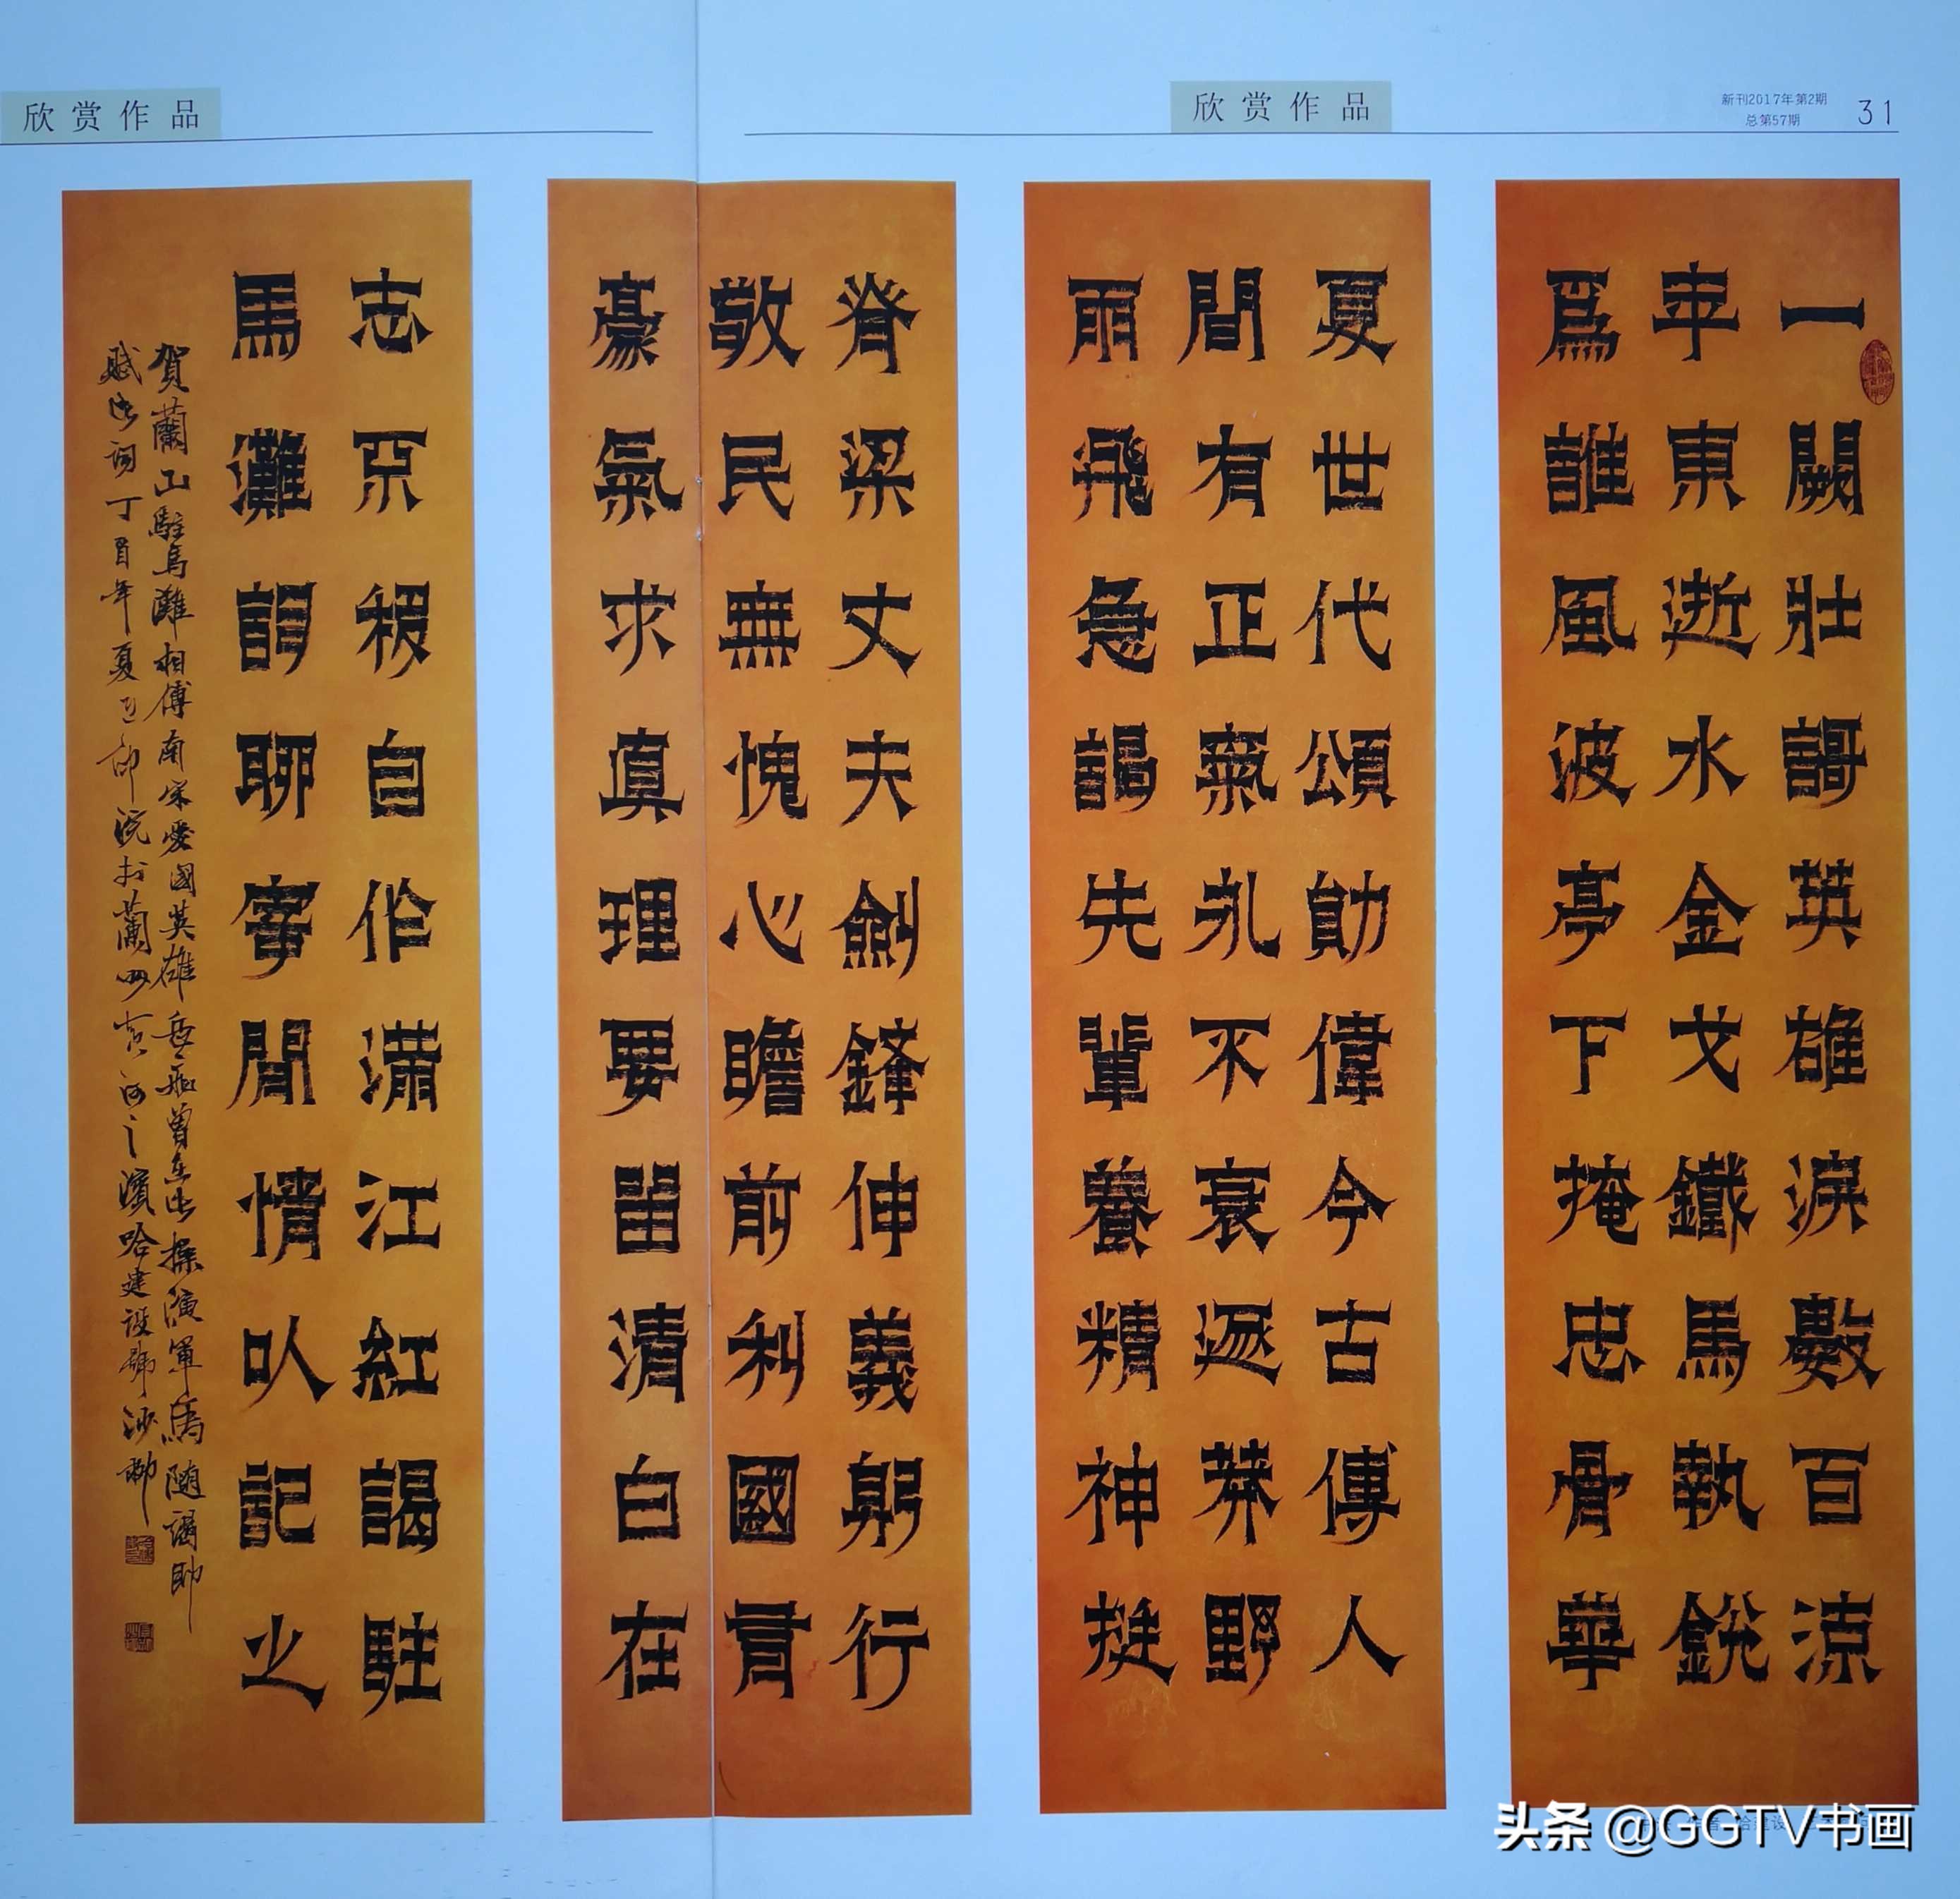 欣赏作品
欣赏作品
新刊2017年第2期
总第57期
31
一闕壯謌英雄淚數百涼
年東逝水金戈鐵馬執銳
爲誰風波亭下掩忠骨華
夏世代頌勛偉今古傳人
間有正氣永不衰遜莽野
雨飛急謁先輩養精神挺
脊梁丈夫劍鋒伸義躬行
敬民無愧心瞻前利國言
豪氣求真理要留清白在
志不移自作满江紅謁駐
馬灘詞聊寄閒情以記之
賀蘭山駐馬灘相傳南宋愛國英雄岳飛曾在此操演軍馬隨謁即
賦此詞丁酉年夏月於蘭州黄河之濱哈建設號沙柳
头条 @GGTV书画